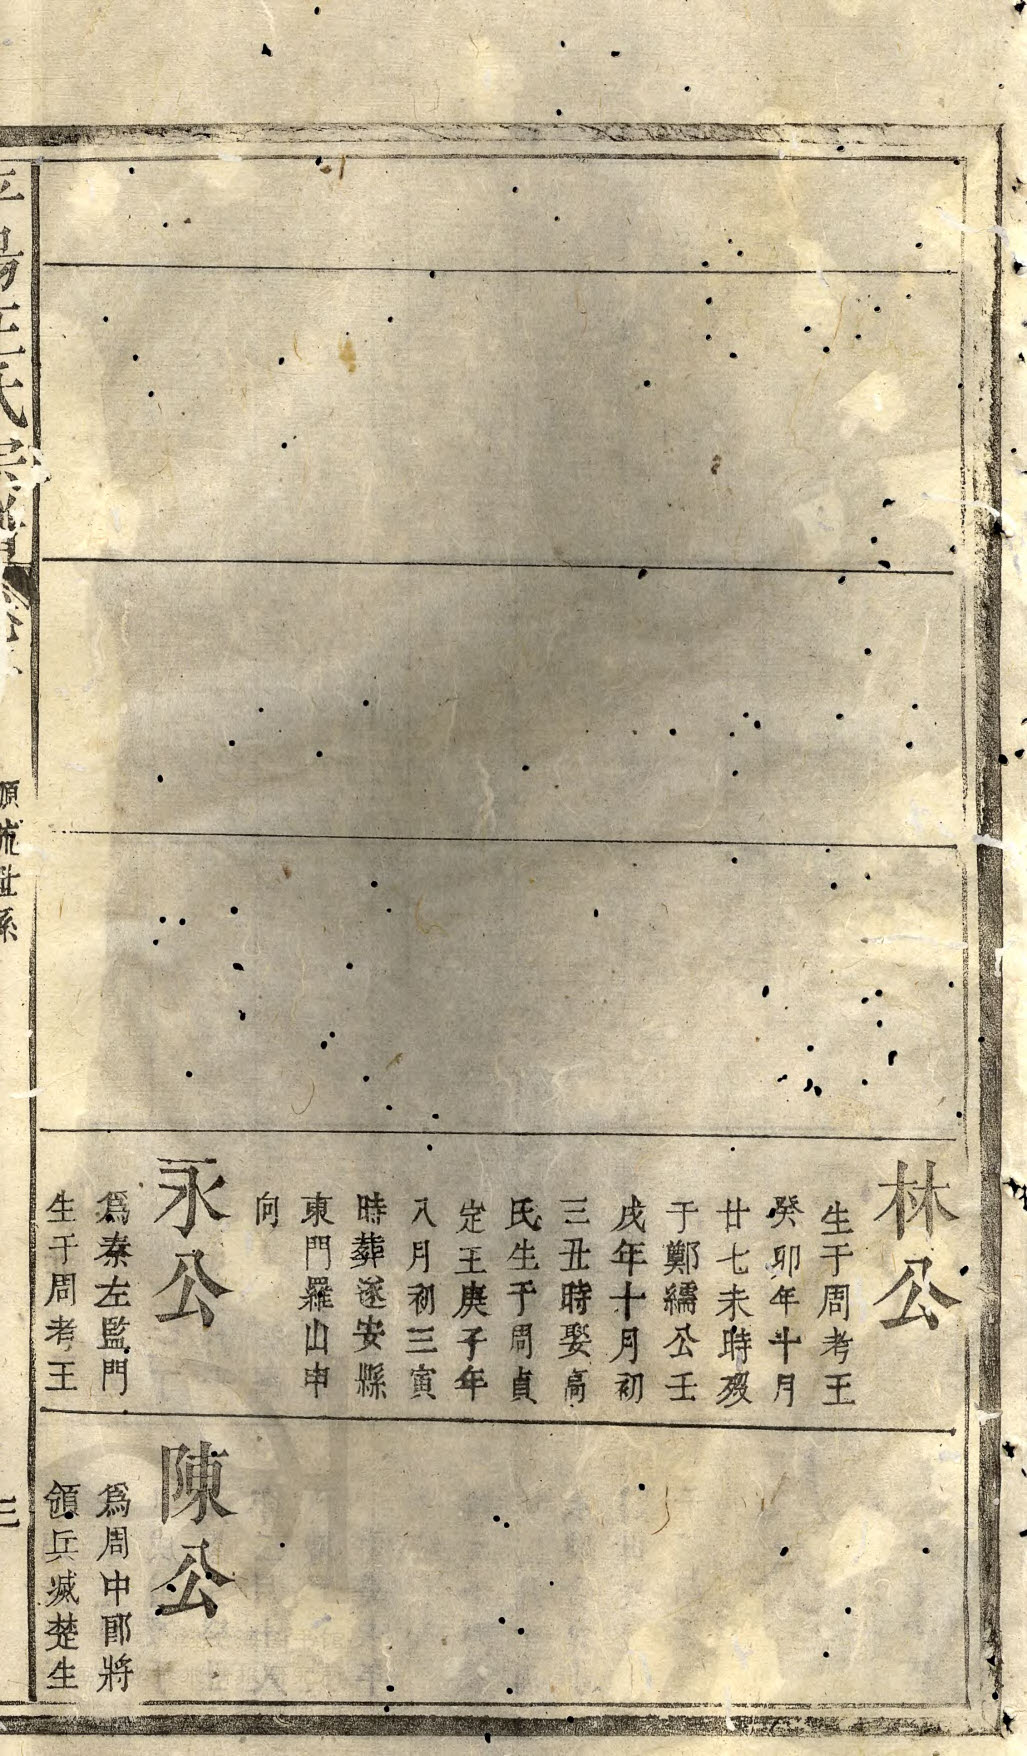 林公
生于周考王
癸卯年十月
廿七未時歿
于鄭繻公壬
戌年十月初
三丑時娶高
氏生于周貞
定王庚子年
八月初三寅
時葬遂安縣
東門羅山申
向
永公
為秦左監門
生于周考王
陳公
為周中郎將
領兵滅楚生
平陽汪氏宗譜
順流世系
三